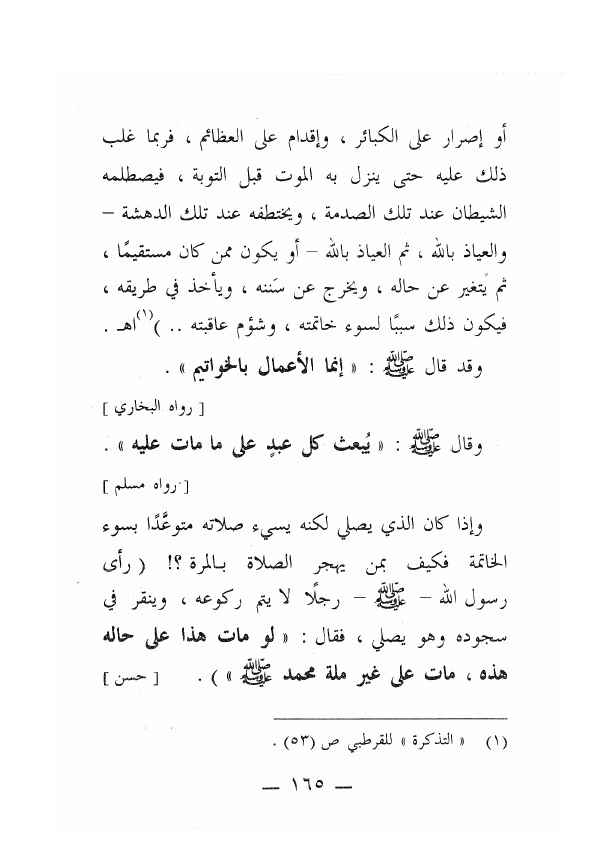 أو إصرار على الكبائر ، وإقدام على العظائم ، فربما غلب
ذلك عليه حتى ينزل به الموت قبل التوبة ، فيصطلمه
الشيطان عند تلك الصدمة ، ويختطفه عند تلك الدهشة –
والعياذ بالله ، ثم العياذ بالله – أو يكون ممن كان مستقيمًا ،
ثم يُتغير عن حاله ، ويخرج عن سَننه ، ويأخذ في طريقه ،
فيكون ذلك سببًا لسوء خاتمته ، وشؤم عاقبته .. )(١)اهـ .
وقد قال ﷺ : « إنما الأعمال بالخواتيم » .
[ رواه البخاري ]
وقال ﷺ : « يُبعث كل عبدٍ على ما مات عليه » .
[ رواه مسلم ]
وإذا كان الذي يصلي لكنه يسيء صلاته متوعَّدًا بسوء
الخاتمة فكيف بمن يهجر الصلاة بالمرة ؟! ( رأى
رسول الله – ﷺ – رجلًا لا يتم ركوعه ، وينقر في
سجوده وهو يصلي ، فقال : « لو مات هذا على حاله
هذه ، مات على غير ملة محمد ﷺ » ) . [ حسن ]
(١) « التذكرة » للقرطبي ص (٥٣) .
— ١٦٥ —